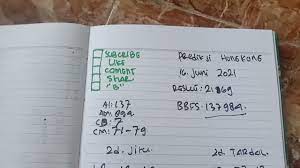 SUBCRIBE
LIKE
COMENT
SHAR
"B"
Prediksi HONGKONG
16 Juni 2021
Result: 21869
BBFS: 137984
AI: 137
CB: 7
CM: 71-79
2d. jitu
2d